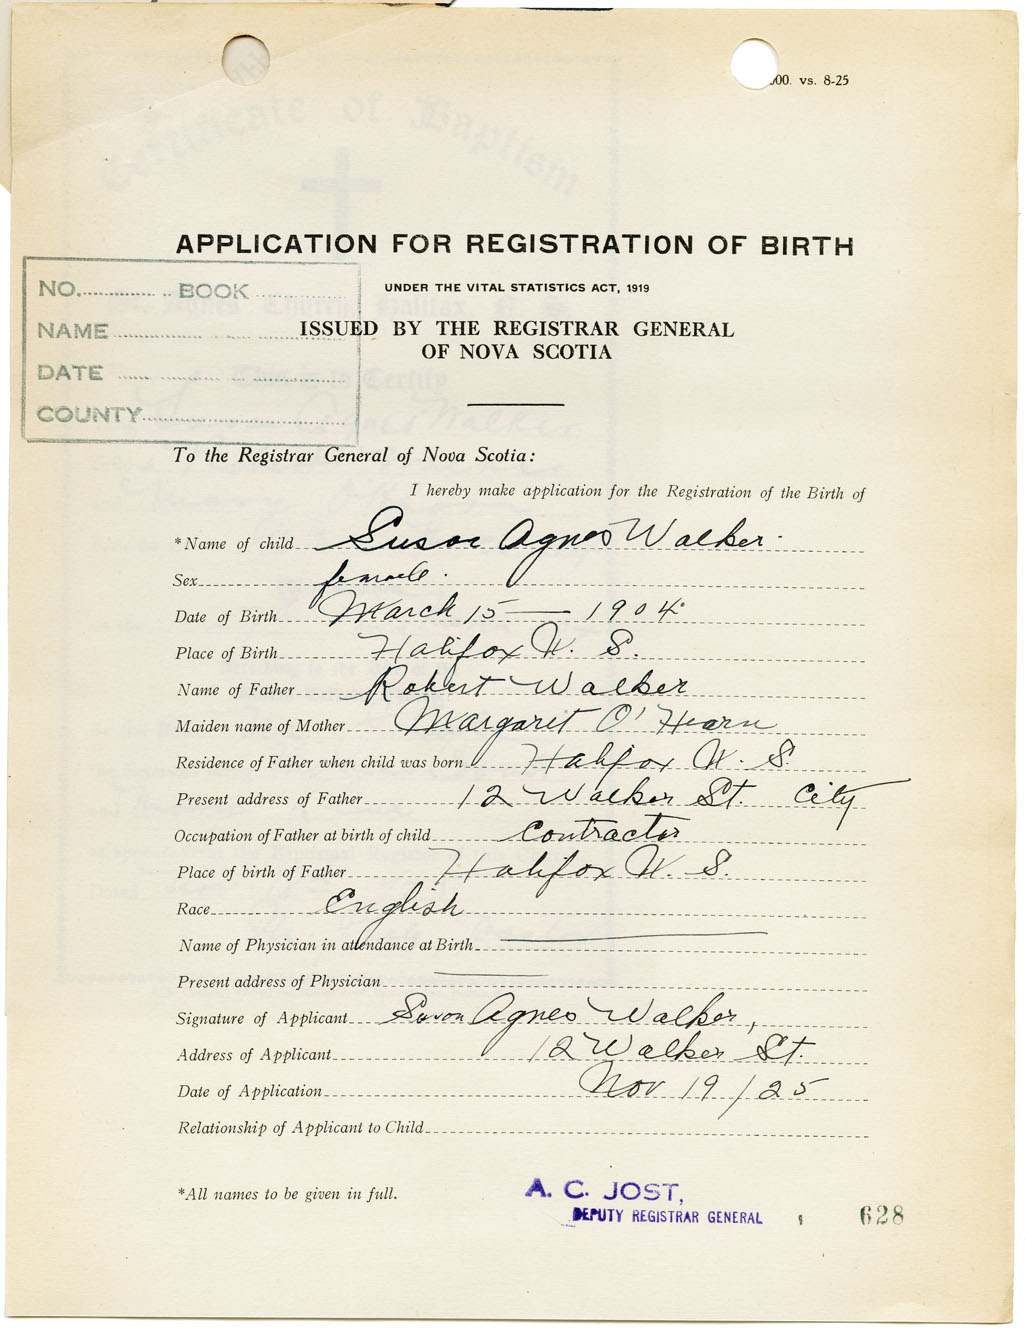 000. vs. 8-25
APPLICATION FOR REGISTRATION OF BIRTH
UNDER THE VITAL STATISTICS ACT, 1919
ISSUED BY THE REGISTRAR GENERAL
OF NOVA SCOTIA
NO. BOOK
NAME
DATE
COUNTY
To the Registrar General of Nova Scotia:
I hereby make application for the Registration of the Birth of
*Name of child Susan Agnes Walker
Sex female.
Date of Birth March 15 — 1904
Place of Birth Halifax N. S.
Name of Father Robert Walker
Maiden name of Mother Margaret O'Hearn
Residence of Father when child was born Halifax N. S.
Present address of Father 12 Walker St. City
Occupation of Father at birth of child Contractor
Place of birth of Father Halifax N. S.
Race English
Name of Physician in attendance at Birth
Present address of Physician
Signature of Applicant Susan Agnes Walker,
Address of Applicant 12 Walker St.
Date of Application Nov 19/25
Relationship of Applicant to Child
*All names to be given in full.
A. C. JOST,
DEPUTY REGISTRAR GENERAL
628